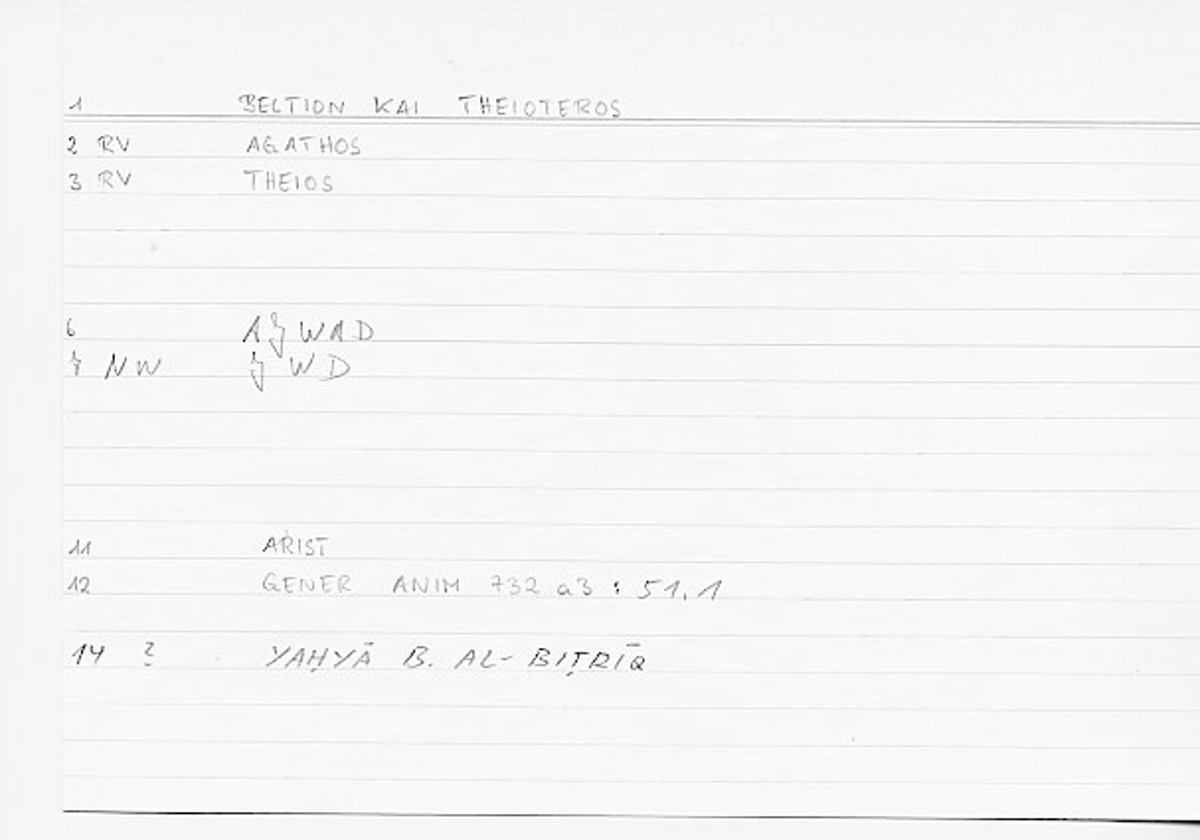 1 BELTION KAI THEIOTEROS
2 RV AGATHOS
3 RV THEIOS
6 AJWAD
7 NW JWD
11 ARIST
12 GENER ANIM 732 a3 : 51,1
14 ? YAḤYĀ B. AL-BIṬRĪQ